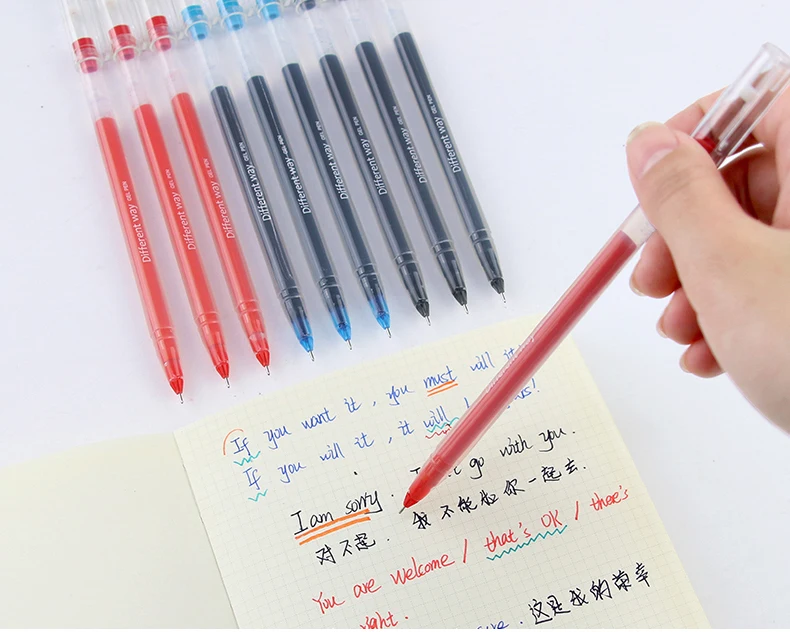 Different way GEL PEN
Different way GEL PEN
Different way GEL PEN
Different way GEL PEN
Different way GEL PEN
Different way GEL PEN
Different way GEL PEN
Different way GEL PEN
Different way GEL PEN
If you want it, you must will it!
If you will it, it will
I am sorry. go with you.
对不起. 我不能和你一起去.
You are welcome / that's OK / there's
right.
这是我的荣幸